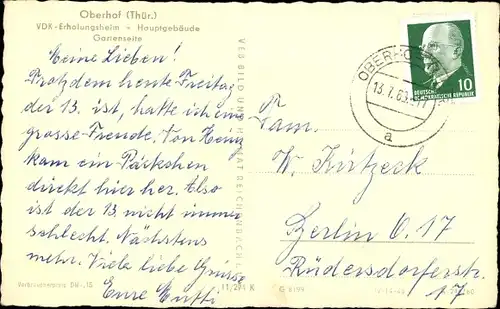 Oberhof (Thür.)
VDK-Erholungsheim - Hauptgebäude
Gartenseite
Meine Lieben!
Trotzdem heute Freitag
der 13. ist, hatte ich eine
grosse Freude. Von Heinz
kam ein Päckchen
direkt hier her. Also
ist der 13. nicht immer
schlecht. Nächstens
mehr. Viele liebe Grüsse
Eure Mutti
Verbraucherpreis DM -,15
11/291 K
VEB BILD UND HEIMAT REICHENBACH
G 6199
OBERHOF
a
10
DEUTSCHE
DEMOKRATISCHE REPUBLIK
Fam.
W. Kirtzeck
Berlin O. 17
Rüdersdorferstr.
17